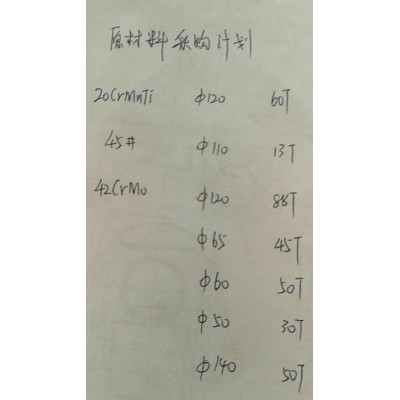 原材料采购计划
20CrMnTi φ120 60T
45# φ110 13T
42CrMo φ120 88T
φ65 45T
φ60 50T
φ50 30T
φ140 50T